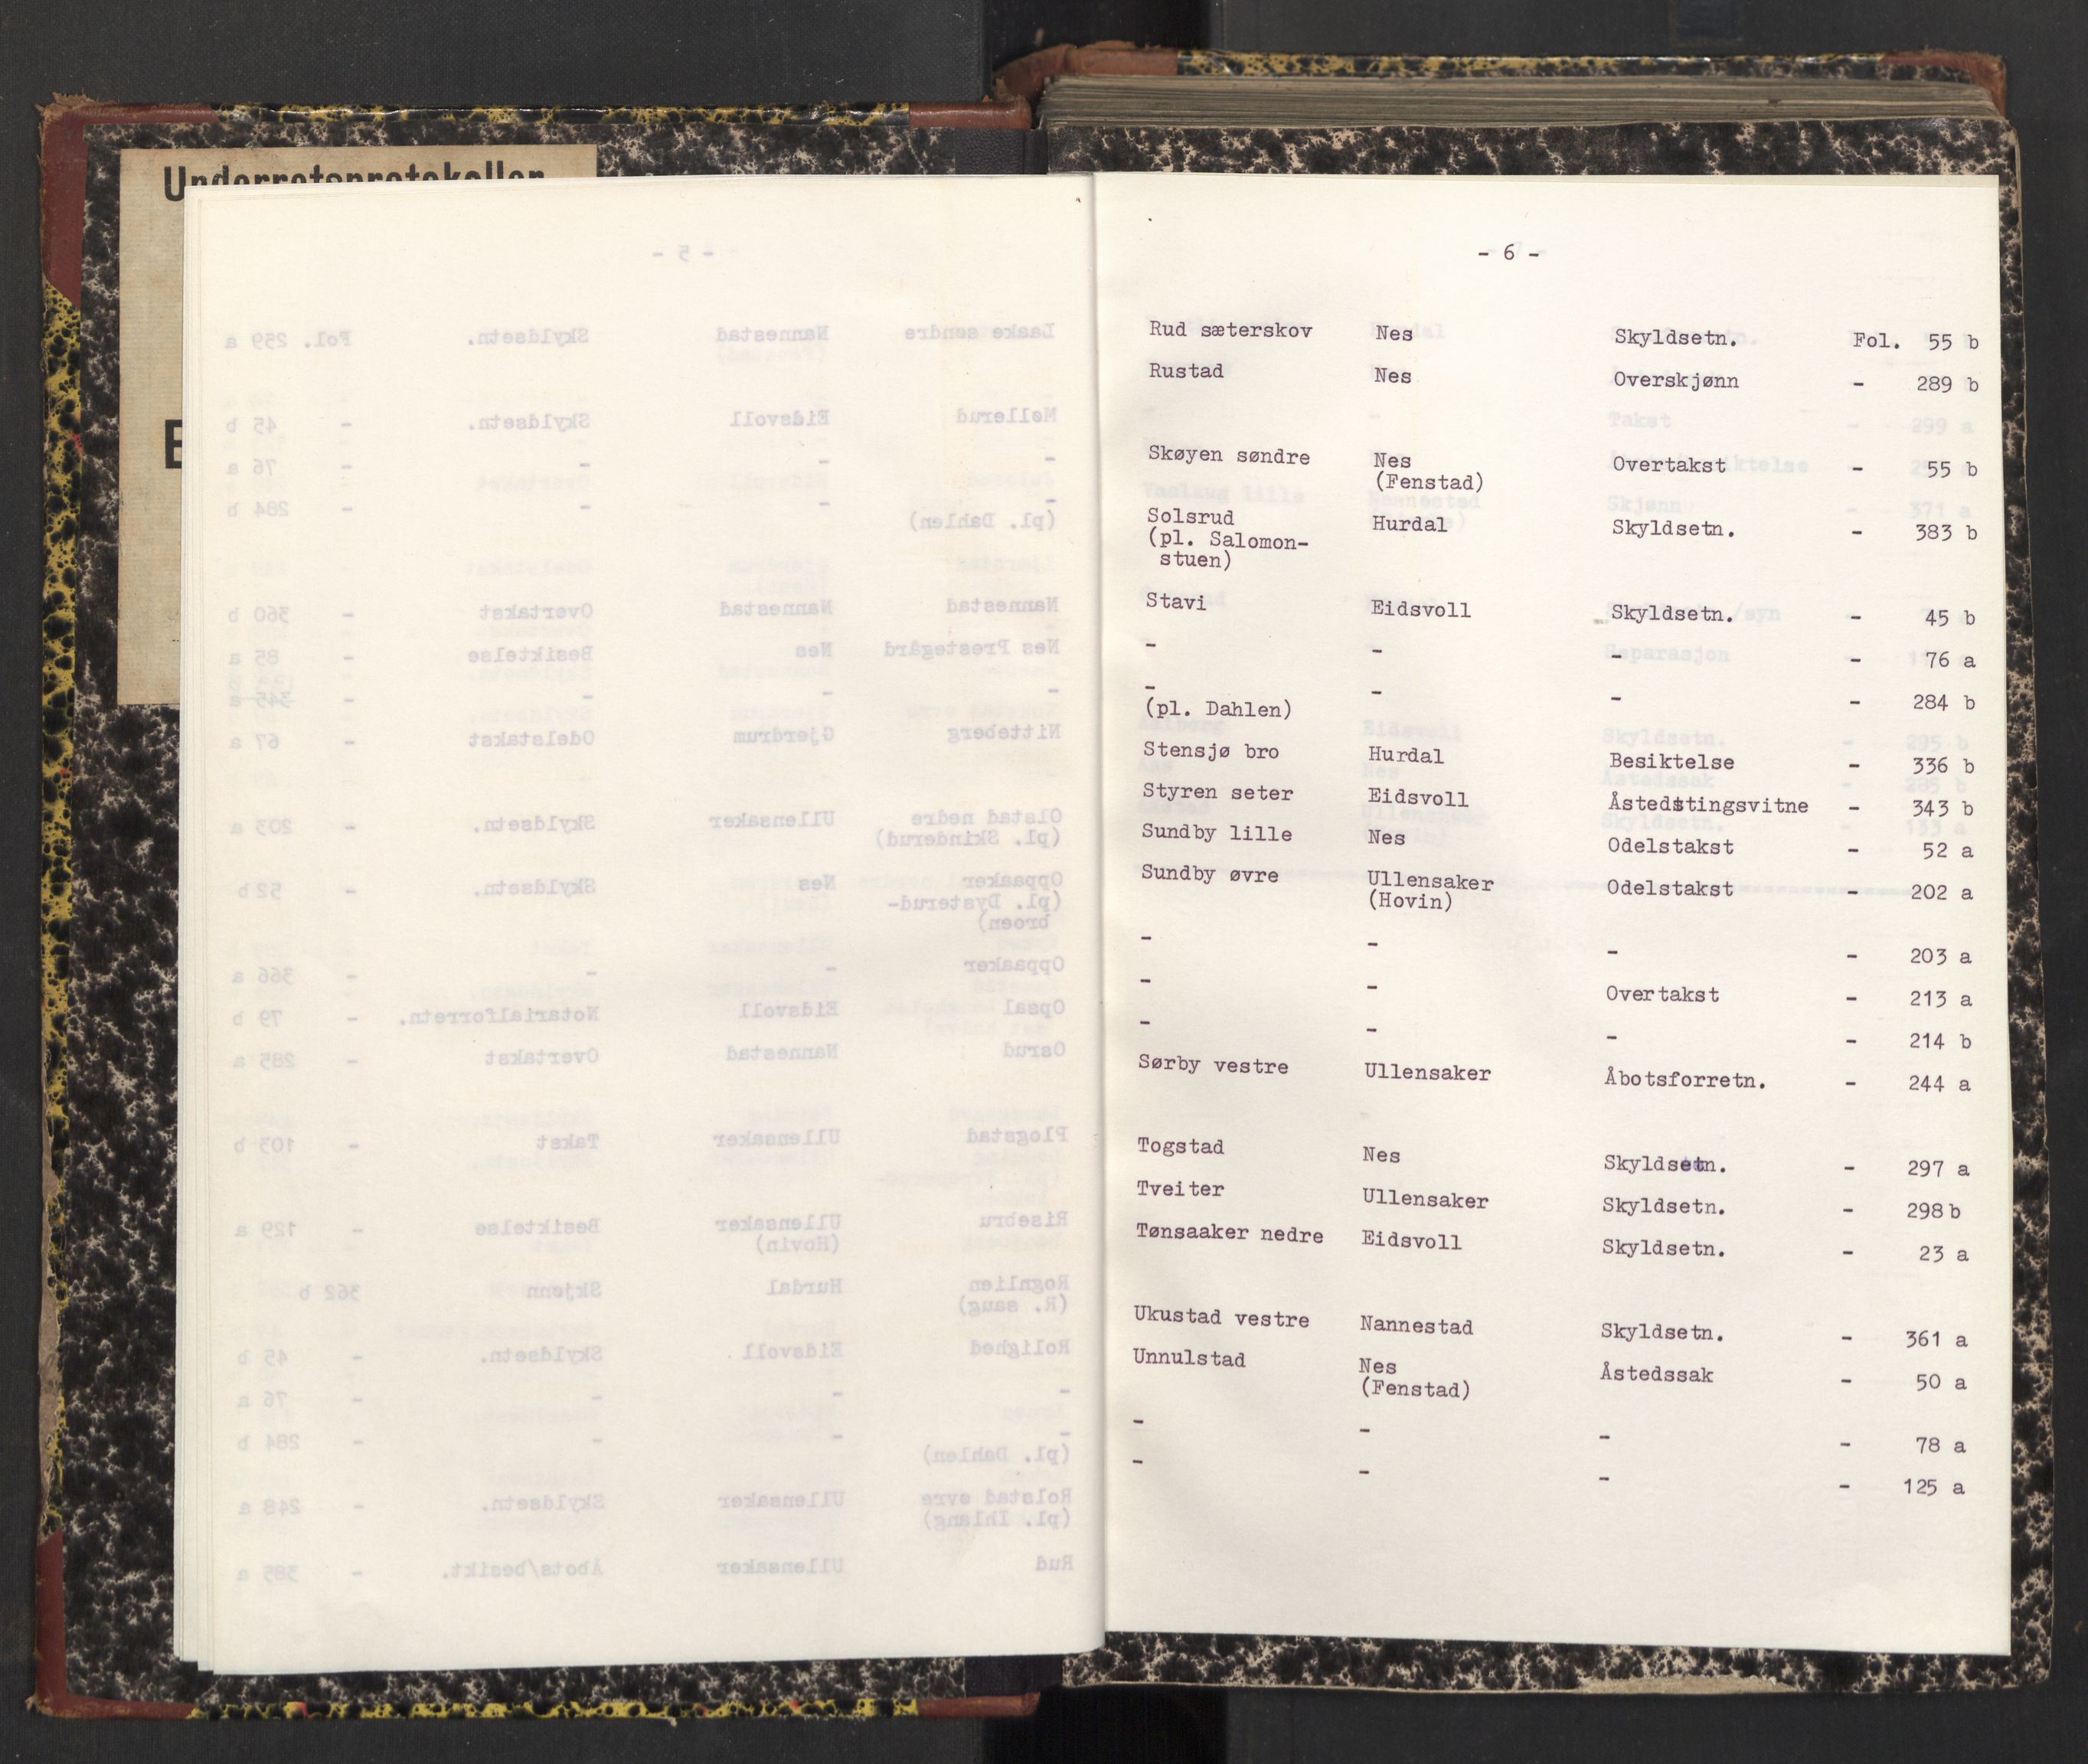 Underretsprotokoller
- 6 -
Rud sæterskov Nes Skyldsetn. Fol. 55 b
Rustad Nes Overskjønn - 289 b
Skøyen søndre Nes Overtakst - 55 b
(Fenstad)
Solsrud Hurdal Skyldsetn. - 383 b
(pl. Salomon-
stuen)
Stavi Eidsvoll Skyldsetn. - 45 b
- - - - 76 a
- - - - 284 b
(pl. Dahlen)
Stensjø bro Hurdal Besiktelse - 336 b
Styren seter Eidsvoll Åstedstingsvitne - 343 b
Sundby lille Nes Odelstakst - 52 a
Sundby øvre Ullensaker Odelstakst - 202 a
(Hovin)
- - - - 203 a
- - Overtakst - 213 a
- - - - 214 b
Sørby vestre Ullensaker Åbotsforretn. - 244 a
Togstad Nes Skyldsetn. - 297 a
Tveiter Ullensaker Skyldsetn. - 298 b
Tønsaaker nedre Eidsvoll Skyldsetn. - 23 a
Ukustad vestre Nannestad Skyldsetn. - 361 a
Unnulstad Nes Åstedssak - 50 a
(Fenstad)
- - - - 78 a
- - - - 125 a